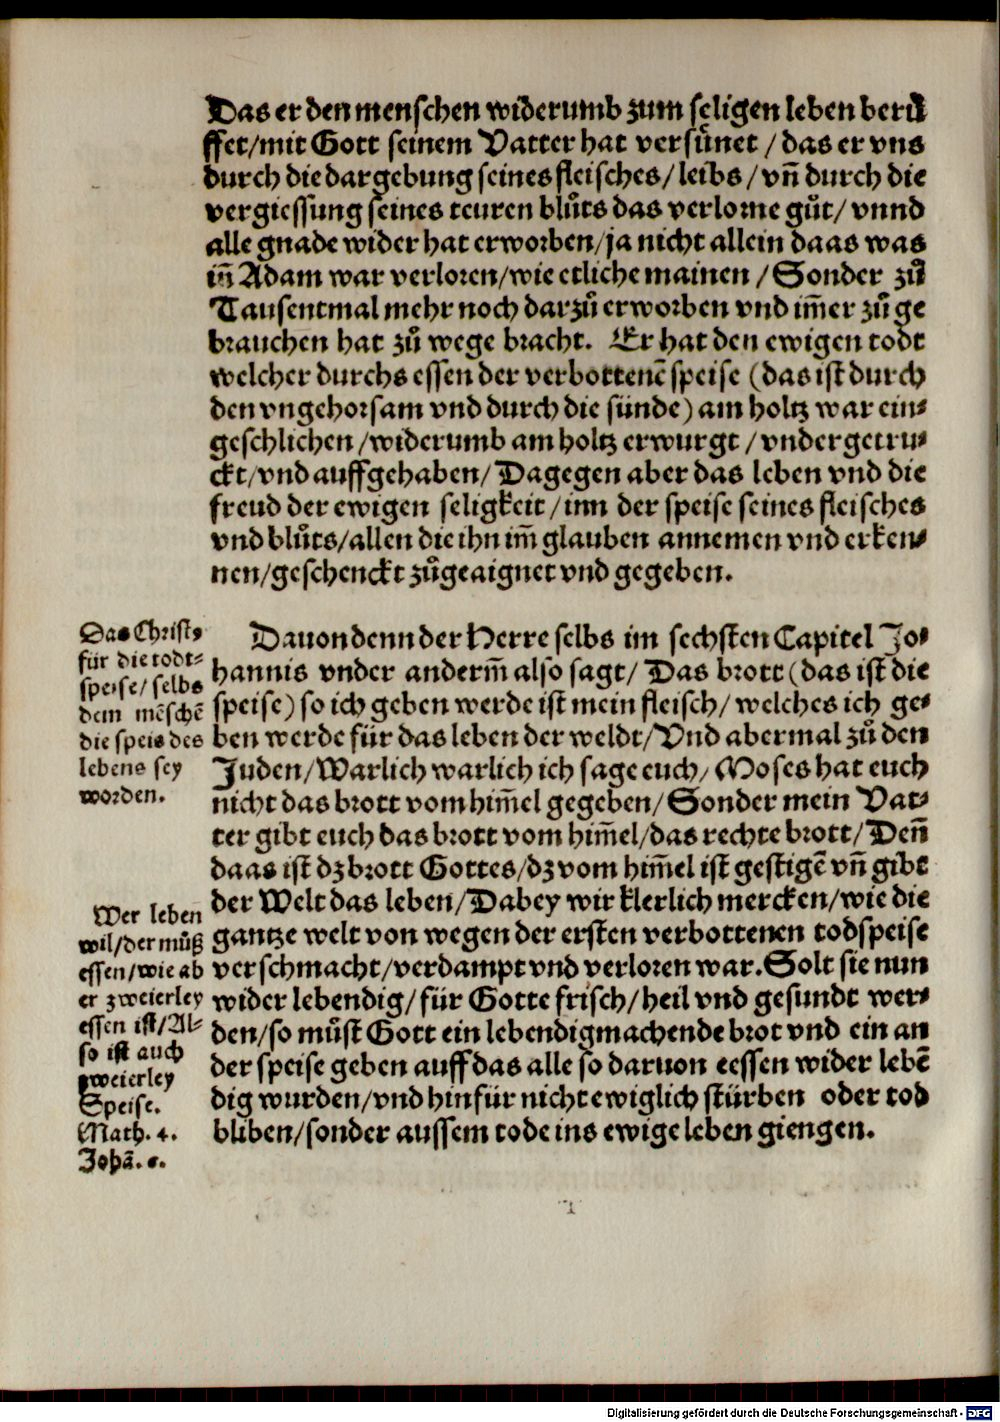 Das er den menschen widerumb zum seligen leben berů
ffet/mit Gott seinem Vatter hat versůnet / das er vns
durch die dargebung seines fleisches/ leibs / vñ durch die
vergiessung seines teuren blůts das verlorne gůt/ vnnd
alle gnade wider hat erworben/ja nicht allein daas was
iñ Adam war verloren/wie etliche mainen /Sonder zů
Tausentmal mehr noch darzů erworben vnd im̄er zů ge
brauchen hat zů wege bracht. Er hat den ewigen todt
welcher durchs essen der verbottenē speise (das ist durch
den vngehorsam vnd durch die sünde) am holtz war ein⸗
geschlichen /widerumb am holtz erwurgt / vndergetru⸗
ckt/vnd auffgehaben/ Dagegen aber das leben vnd die
freud der ewigen seligkeit /inn der speise seines fleisches
vnd blůts/allen die ihn im̄ glauben annemen vnd erken⸗
nen/geschenckt zůgeaignet vnd gegeben.
Das Christ⸗
für die todt⸗
speise/ selbs
dem mēschē
die speis des
lebens sey
worden.
Dauon denn der Herre selbs im sechsten Capitel Jo⸗
hannis vnder anderm̄ also sagt/ Das brott (das ist die
speise) so ich geben werde ist mein fleisch/ welches ich ge⸗
ben werde für das leben der weldt/Vnd abermal zů den
Juden/Warlich warlich ich sage euch/ Moses hat euch
nicht das brott vom him̄el gegeben/ Sonder mein Vat⸗
ter gibt euch das brott vom him̄el/das rechte brott/ Deñ
daas ist dz brott Gottes/dz vom him̄el ist gestigē vñ gibt
der Welt das leben/Dabey wir klerlich mercken/wie die
gantze welt von wegen der ersten verbottenen todspeise
verschmacht/verdampt vnd verloren war. Solt sie nun
wider lebendig/ für Gotte frisch/heil vnd gesundt wer⸗
den/so můst Gott ein lebendigmachende brot vnd ein an
der speise geben auff das alle so daruon eessen wider lebē
dig wurden/vnd hinfür nicht ewiglich stürben oder tod
bliben/sonder aussem tode ins ewige leben giengen.
Wer leben
wil/der můß
essen/wie ab
er zweierley
essen ist/Al⸗
so ist auch
zweierley
Speise.
Math. 4.
Johā. 6.
Digitalisierung gefördert durch die Deutsche Forschungsgemeinschaft - DFG